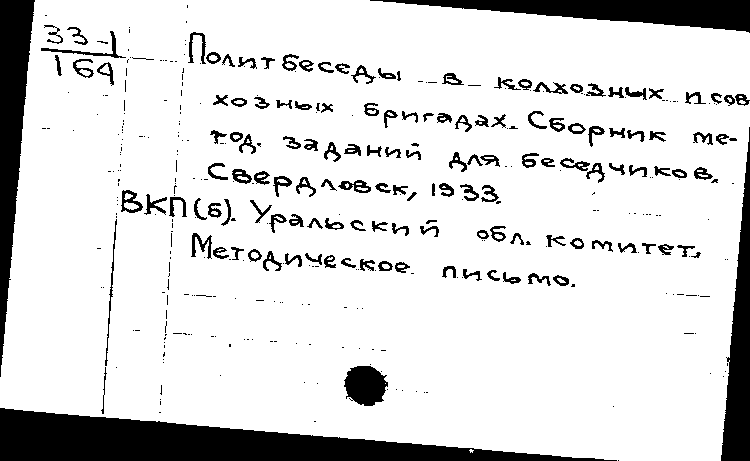 33-1
164
Политбеседы в колхозных и сов
хозных бригадах. Сборник ме-
тод. заданий для беседчиков.
Свердловск, 1933.
ВКП(б). Уральский обл. комитет.
Методическое письмо.